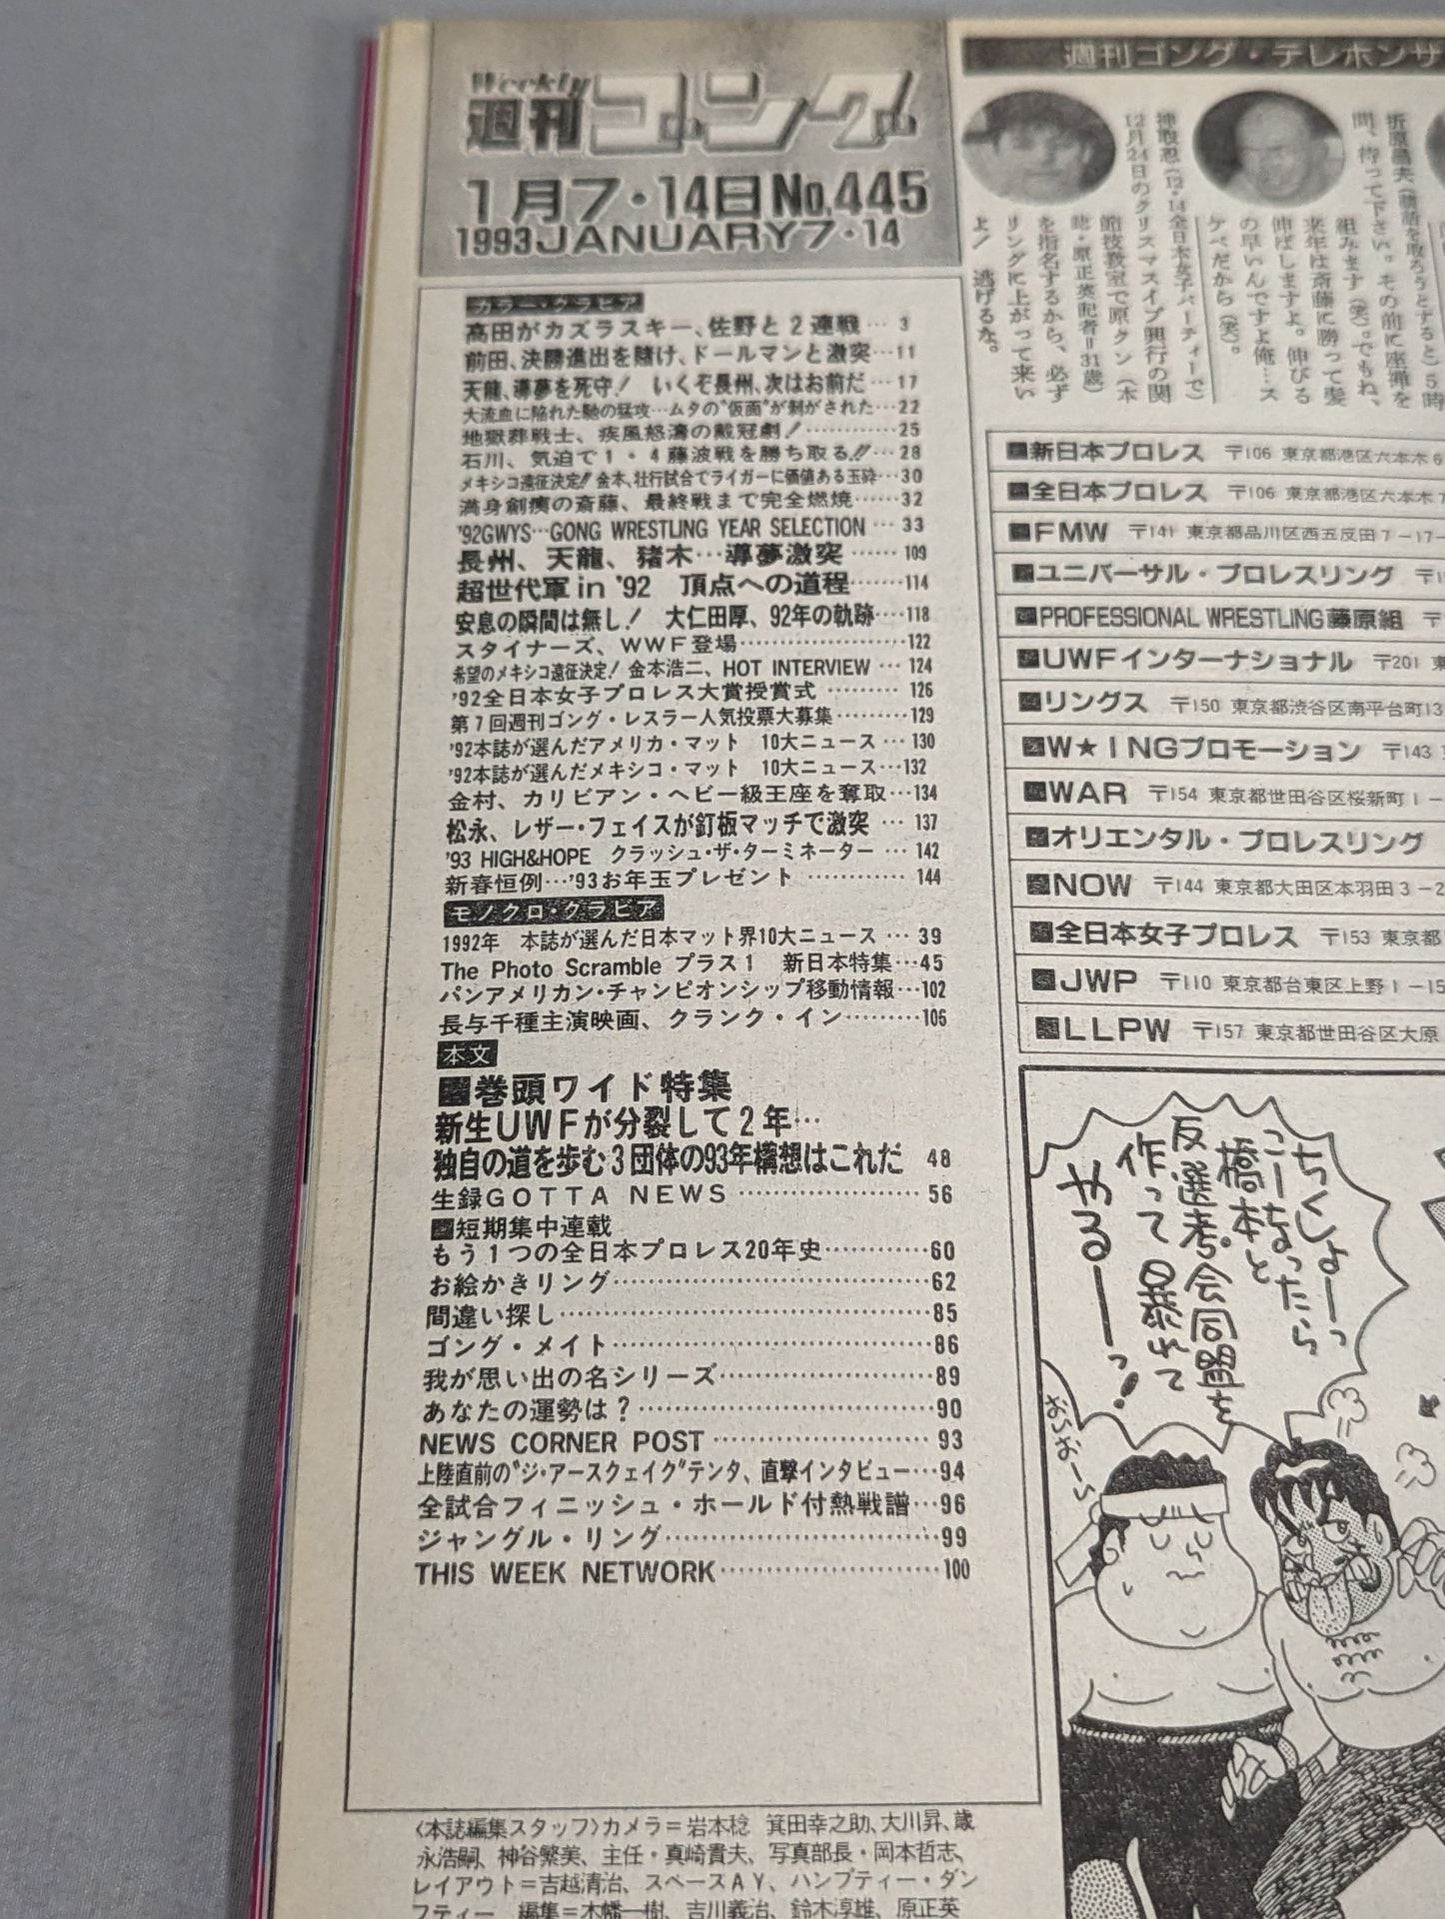 Weekly
週刊ゴング
1月7・14日No.445
1993JANUARY7・14
カラー・グラビア
高田がカズラスキー、佐野と2連戦… 3
前田、決勝進出を賭け、ドールマンと激突…11
天龍、導夢を死守！ いくぞ長州、次はお前だ…17
大流血に陥れた馳の猛攻…ムタの"仮面"が剝がされた…22
地獄葬戦士、疾風怒濤の戴冠劇！…………25
石川、気迫で1・4藤波戦を勝ち取る!!…28
メキシコ遠征決定!! 金本、壮行試合でライガーに価値ある玉砕…30
満身創痍の斎藤、最終戦まで完全燃焼……32
'92GWYS…GONG WRESTLING YEAR SELECTION … 33
長州、天龍、猪木…導夢激突 …… 109
超世代軍in '92 頂点への道程……114
安息の瞬間は無し！ 大仁田厚、92年の軌跡…118
スタイナーズ、WWF登場………………122
希望のメキシコ遠征決定！金本浩二、HOT INTERVIEW … 124
'92全日本女子プロレス大賞授賞式 ……… 126
第7回週刊ゴング・レスラー人気投票大募集………129
'92本誌が選んだアメリカ・マット 10大ニュース … 130
'92本誌が選んだメキシコ・マット 10大ニュース…132
金村、カリビアン・ヘビー級王座を奪取…134
松永、レザー・フェイスが釘板マッチで激突 … 137
'93 HIGH&HOPE クラッシュ・ザ・ターミネーター … 142
新春恒例…'93お年玉プレゼント ………… 144
モノクロ・グラビア
1992年 本誌が選んだ日本マット界10大ニュース … 39
The Photo Scramble プラス1 新日本特集…45
パンアメリカン・チャンピオンシップ移動情報…102
長与千種主演映画、クランク・イン………106
本文
巻頭ワイド特集
新生UWFが分裂して2年…
独自の道を歩む3団体の93年構想はこれだ 48
生録GOTTA NEWS ………………… 56
短期集中連載
もう1つの全日本プロレス20年史…………60
お絵かきリング……………………………62
間違い探し…………………………………85
ゴング・メイト……………………………86
我が思い出の名シリーズ…………………89
あなたの運勢は？…………………………90
NEWS CORNER POST …………………… 93
上陸直前の"ジ・アースクェイク"テンタ、直撃インタビュー…94
全試合フィニッシュ・ホールド付熱戦譜…96
ジャングル・リング………………………99
THIS WEEK NETWORK……………………100
〈本誌編集スタッフ〉カメラ＝岩本稔 箕田幸之助、大川昇、歳
永浩嗣、神谷繁美、主任・真崎貴夫、写真部長・岡本哲志、
レイアウト＝吉越清治、スペースAY、ハンプティー・ダン
プティー 編集＝木幡一樹、吉川義治、鈴木淳雄、原正英
週刊ゴング・テレホンサ
神取忍（12・14全日本女子パーティーで）
12月24日のクリスマスイブ興行の関
節技教室で原クン（本
誌・原正英記者＝31歳）
を指名するから、必ず
リングに上がって来い
よ！ 逃げるな。
折原昌夫
間、待って下さい。その前に座禅を
組みます（笑）。でもね、
来年は斎藤に勝って髪
伸ばしますよ。伸びる
の早いんですよ俺…ス
ケベだから（笑）。
新日本プロレス 〒106 東京都港区六本木6
全日本プロレス 〒106 東京都港区六本木7
FMW 〒141 東京都品川区西五反田7－17－
ユニバーサル・プロレスリング 〒1
PROFESSIONAL WRESTLING藤原組 〒
UWFインターナショナル 〒201 東
リングス 〒150 東京都渋谷区南平台町13
W★INGプロモーション 〒143
WAR 〒154 東京都世田谷区桜新町1－
オリエンタル・プロレスリング
NOW 〒144 東京都大田区本羽田3－2
全日本女子プロレス 〒153 東京都
JWP 〒110 東京都台東区上野1－15
LLPW 〒157 東京都世田谷区大原
ちくしょーっ
こーなったら
橋本と
反選考会同盟を
作って暴れて
やるーーっ！
おらおーい